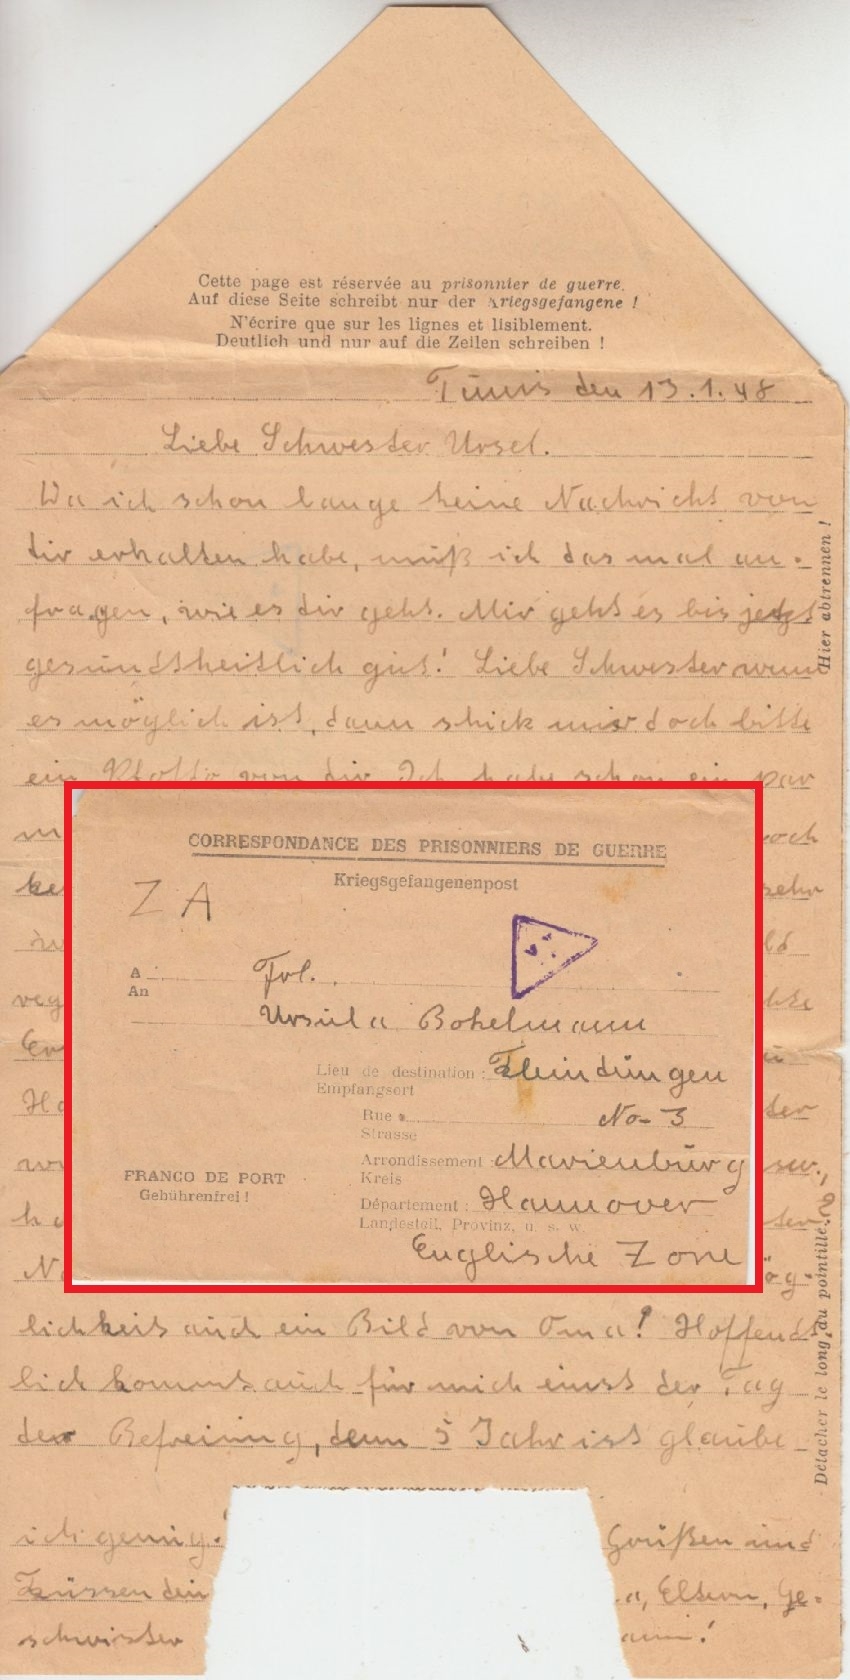 Cette page est réservée au prisonnier de guerre.
Auf diese Seite schreibt nur der Kriegsgefangene !
N'écrire que sur les lignes et lisiblement.
Deutlich und nur auf die Zeilen schreiben !
Tunis den 13.1.48
Liebe Schwester Ursel.
Da ich schon lange keine Nachricht von
dir erhalten habe, muß ich das mal an-
fragen, wie es dir geht. Mir geht es bis jetzt
gesundtheitlich gut! Liebe Schwester wenn
es möglich ist, dann shick mir doch bitte
ein Pfotto von dir. Ich habe schon ein par
Hier abtrennen !
CORRESPONDANCE DES PRISONNIERS DE GUERRE
Kriegsgefangenenpost
Z A
A
An
Frl.
Ursula Bokelmann
Lieu de destination :
Empfangsort
Rue
Strasse
No- 3
Arrondissement Marienburg
Kreis
FRANCO DE PORT
Gebührenfrei !
Département : Hannover
Landesteil, Provinz, u. s. w.
Englische Zone
lichkeit auch ein Bild von Oma! Hoffendt
lich kommt auch für mich einst der Tag
der Befreiung, denn 5 Jahr ist glaube
ich genug.
Grüßen und
Küssen dein
Eltern, Ge-
schwister
Détacher le long du pointillé.